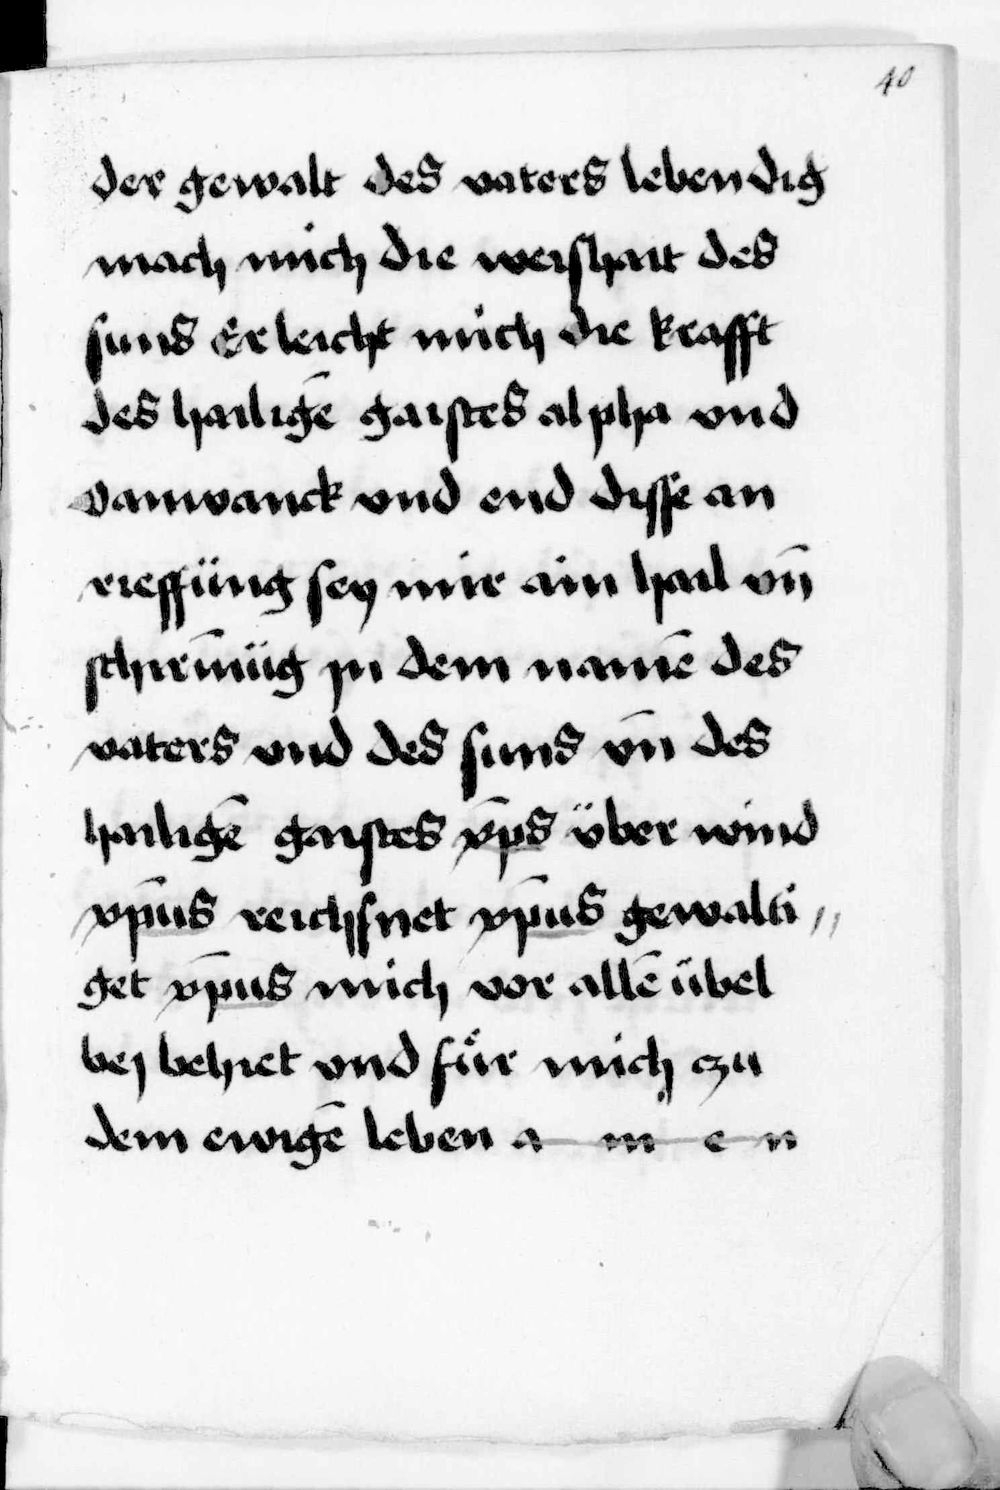 40
der gewalt des vaters lebendig
mach mich die weishait des
suns Erleicht mich die krafft
des hailigē gaistes alpha vnd
vanvanck vnd end disse an
rieffüng sey mir ain hail vn̄
schirm̄üg jn dem namē des
vaters vnd des suns vn̄ des
hailigē gaistes xp̄s über wind
xp̄us reichsnet xp̄us gewalti〃
get xp̄us mich vor allē übel
bej behiet vnd fu̇r mich czu
dem ewigē leben a m e n